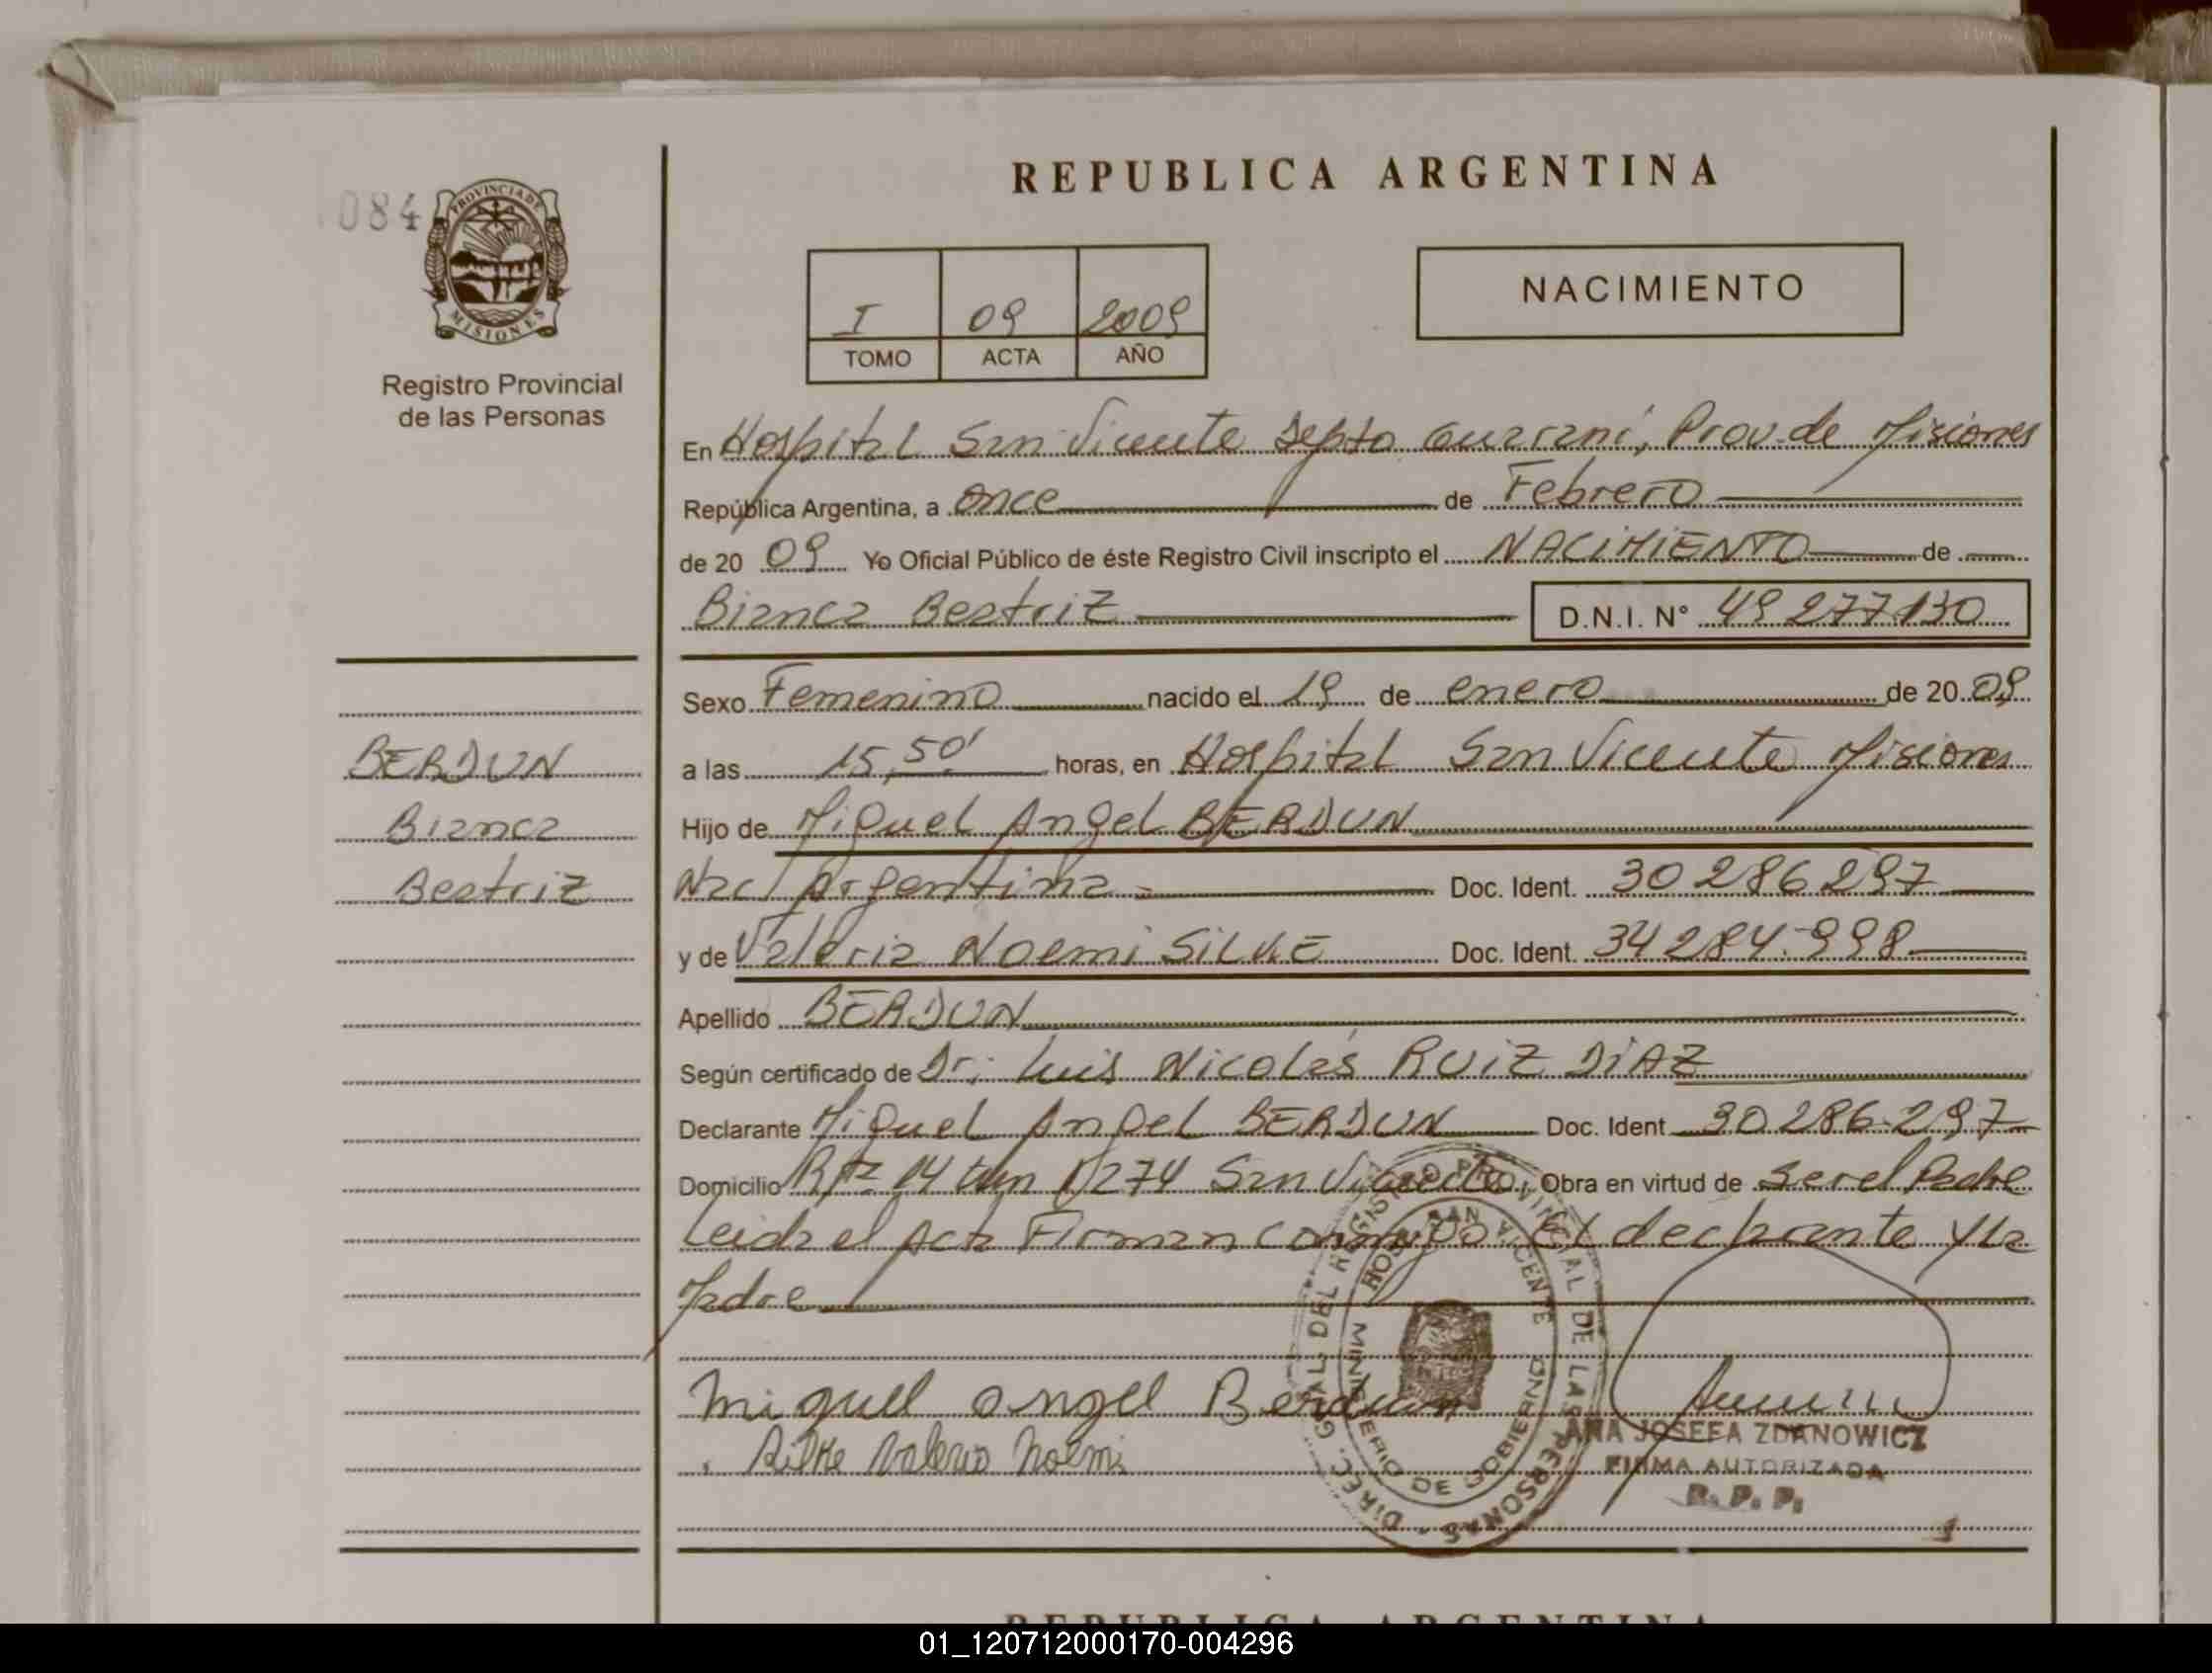 REPUBLICA ARGENTINA
084
PROVINCIA DE
MISIONES
Registro Provincial
de las Personas
I 09 2009
TOMO ACTA AÑO
NACIMIENTO
En Hospital San Vicente Depto Guaraní, Prov. de Misiones
República Argentina, a once de Febrero
de 20 09 Yo Oficial Público de éste Registro Civil inscripto el NACIMIENTO de
Bianca Beatriz D.N.I. N° 49 277 130
Sexo Femenino nacido el 19 de enero de 20 09
a las 15,50' horas, en Hospital San Vicente Misiones
BERDUN
Hijo de Miguel Angel BERDUN
Bianca
Nac Argentina = Doc. Ident. 30 286 297
Beatriz
y de Valeria Noemi SILKE Doc. Ident. 34 284.998
Apellido BERDUN
Según certificado de Dr. Luis Nicolás RUIZ DIAZ
Declarante Miguel Angel BERDUN Doc. Ident 30 286.297
Domicilio Rta 14 1274 San Vicente, Obra en virtud de ser el Padre
Leida el Acta Firman conmigo El declarante y la
Madre
Miguel angel Berdun
Silke Valeria Noemi
DIREC. GRAL. DEL REGISTRO PROVINCIAL DE LAS PERSONAS
HOSP. SAN VICENTE
MINISTERIO DE GOBIERNO
ANA JOSEFA ZDANOWICZ
FIRMA AUTORIZADA
R. P. P.
1
REPUBLICA ARGENTINA
01_120712000170-004296